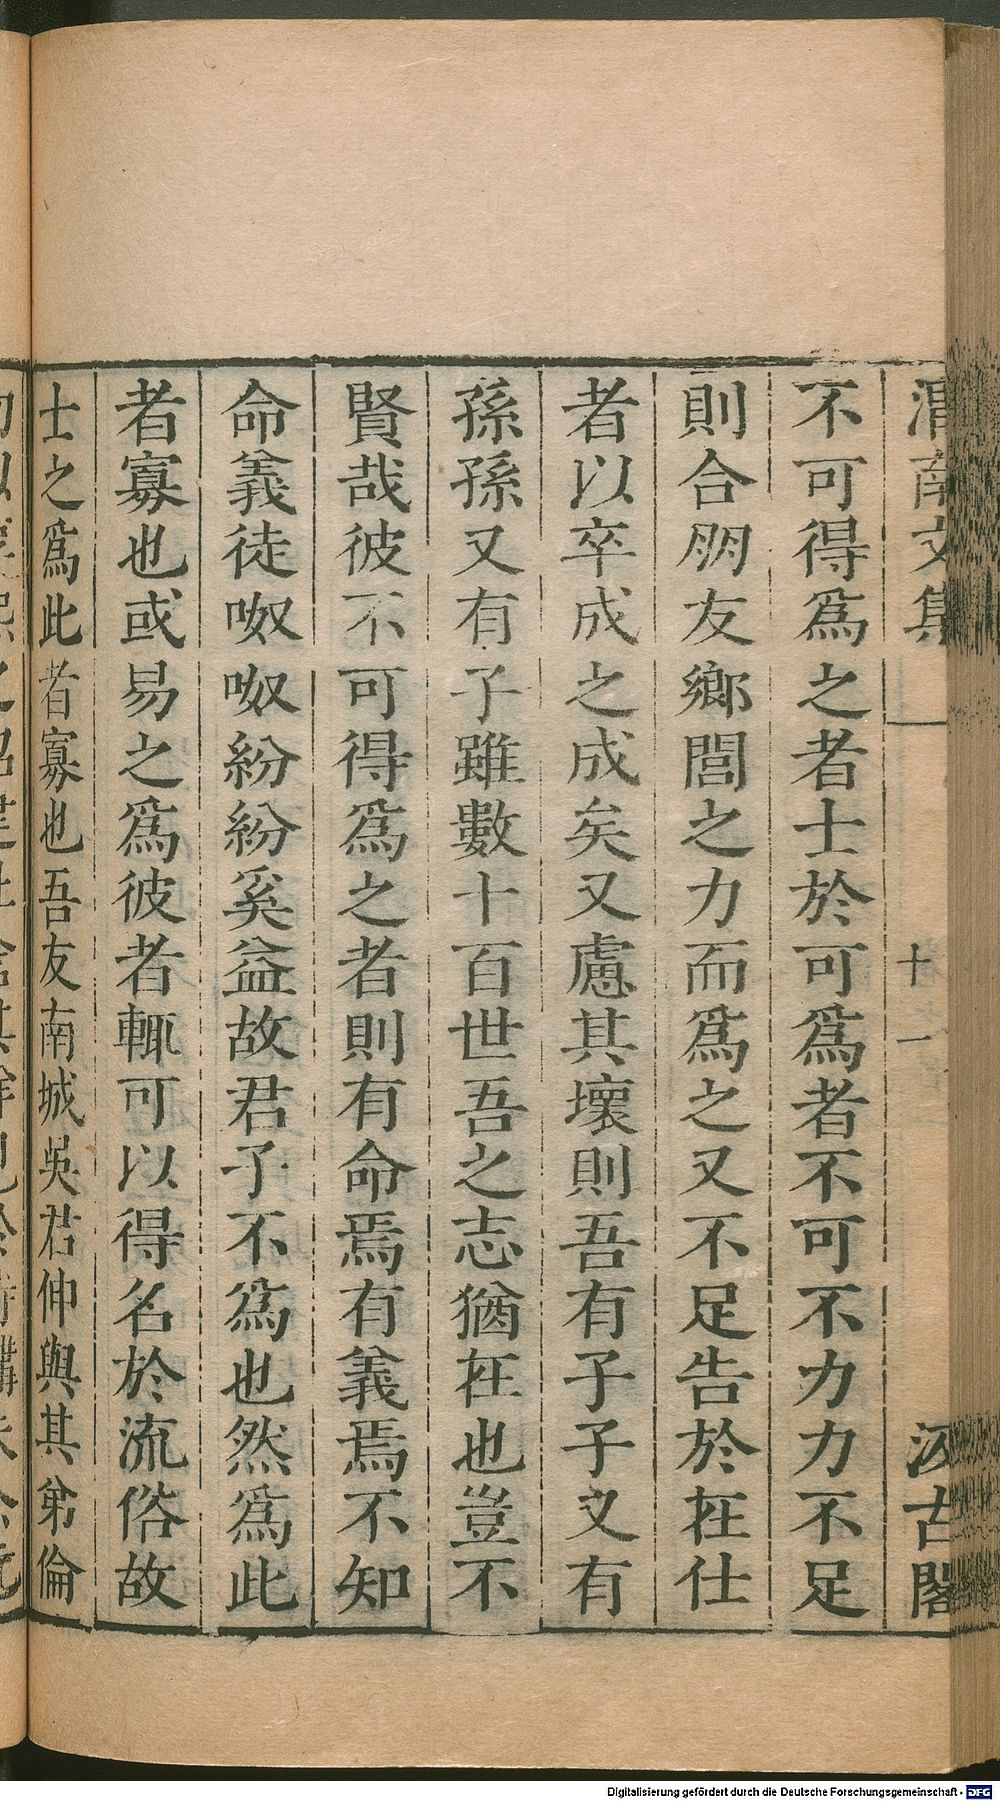 渭南文集 十一 汲古閣
不可得爲之者士於可爲者不可不力力不足
則合朋友鄉閭之力而爲之又不足告於在仕
者以卒成之成矣又慮其壞則吾有子子又有
孫孫又有子雖數十百世吾之志猶在也豈不
賢哉彼不可得爲之者則有命焉有義焉不知
命義徒呶呶紛紛奚益故君子不爲也然爲此
者寡也或易之爲彼者輒可以得名於流俗故
士之爲此者寡也吾友南城吳君伸與其弟倫
Digitalisierung gefördert durch die Deutsche Forschungsgemeinschaft - DFG